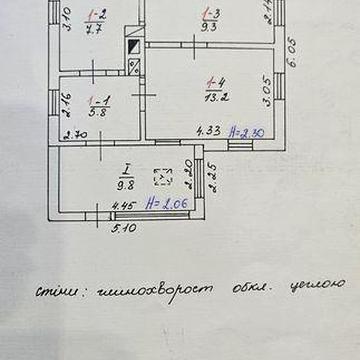 3.10
1-2
7.7
1-3
9.3
2.14
6.05
2.16
1-1
5.8
2.70
1-4
13.2
3.05
4.33 H=2.30
I
9.8
2.20
2.25
4.45 H=2.06
5.10
стіни: глинохворост обкл. цеглою